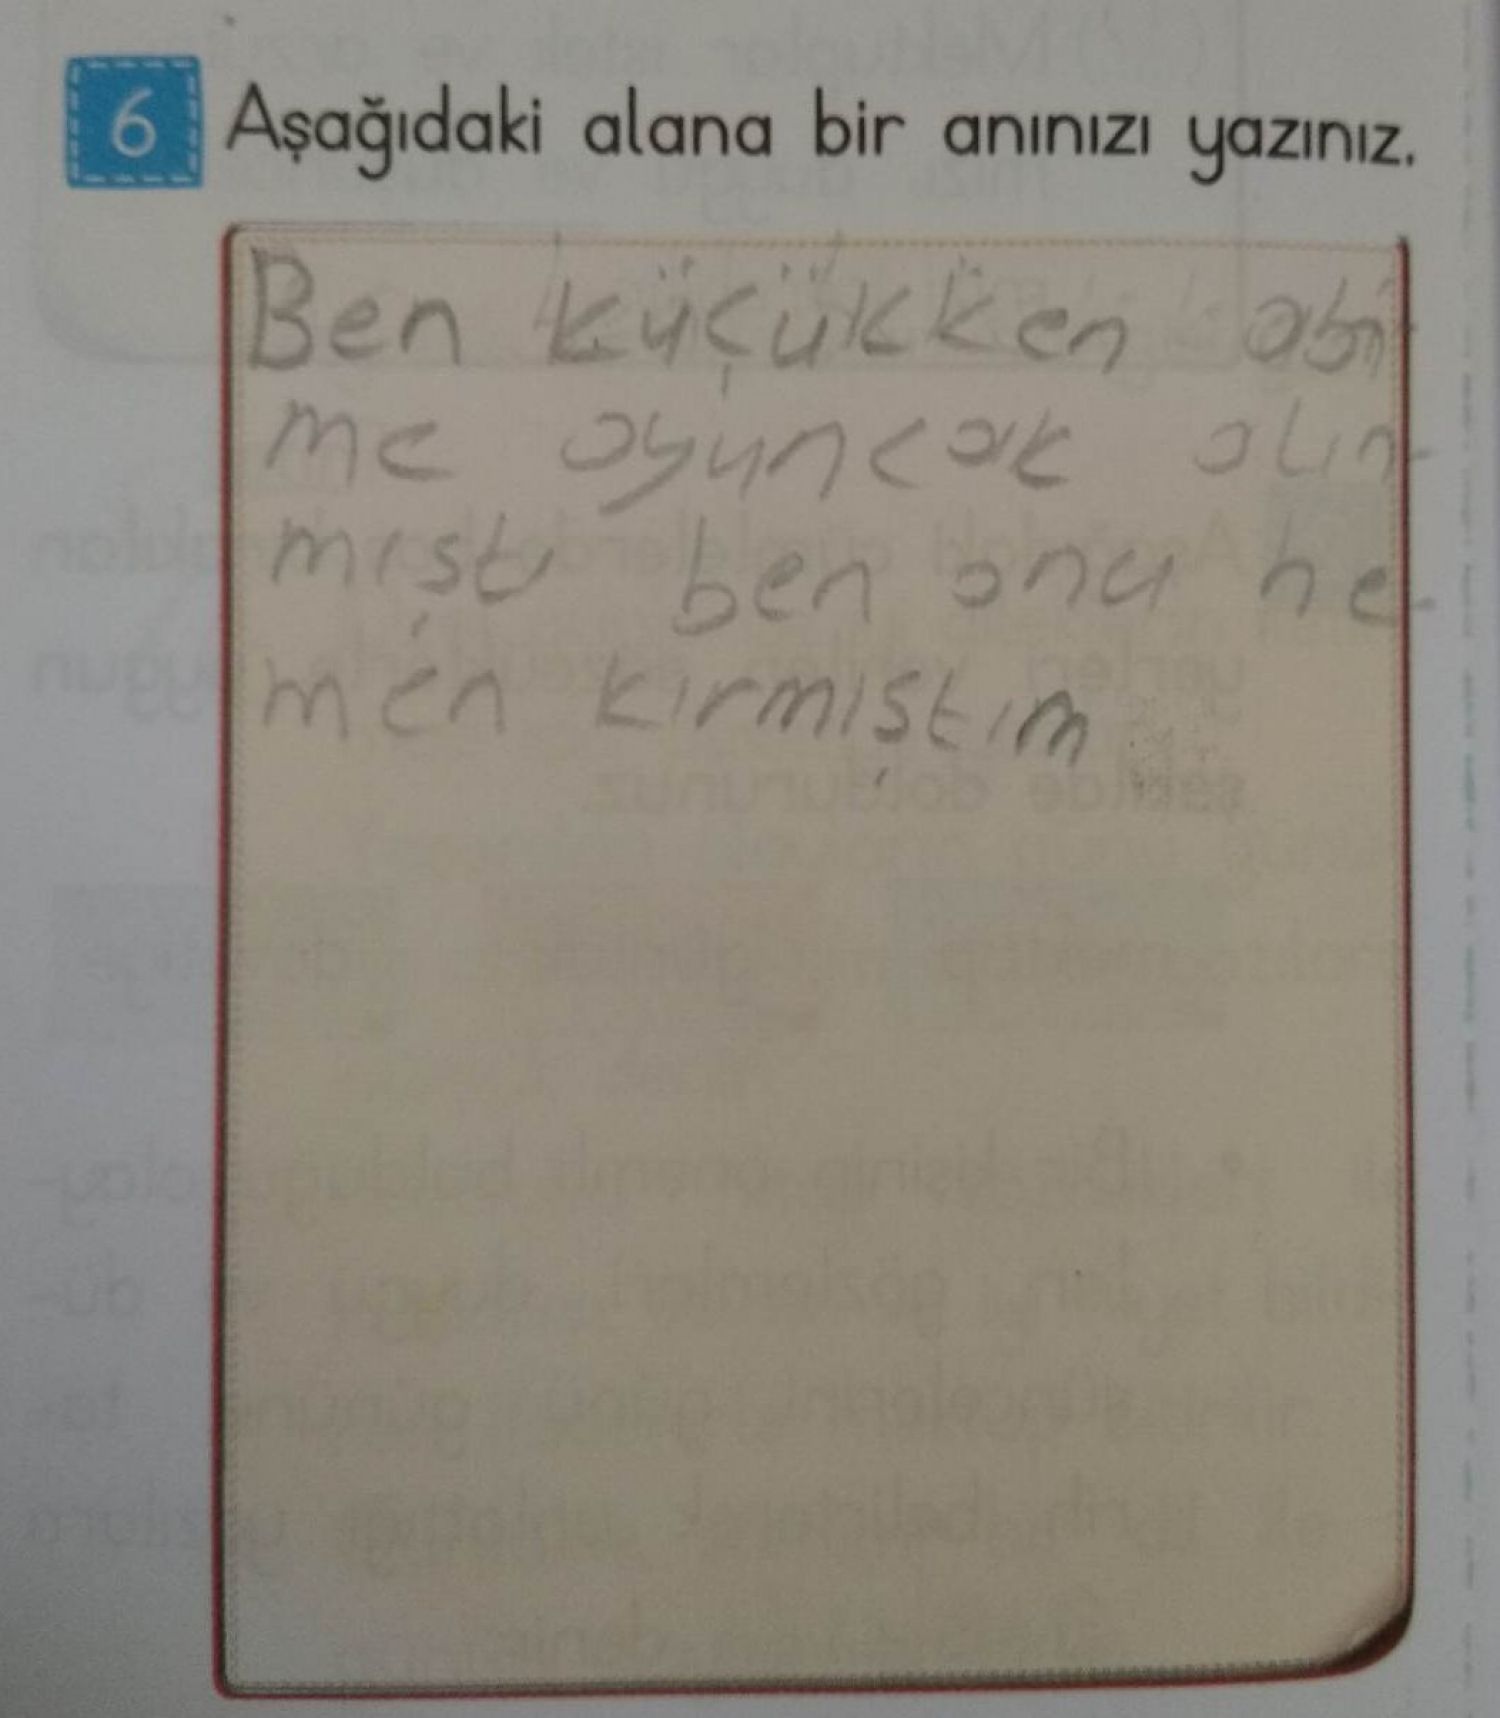 6 Aşağıdaki alana bir anınızı yazınız.
Ben küçükken abi-
me oyuncak alın-
mıştı ben onu he-
men kırmıştım